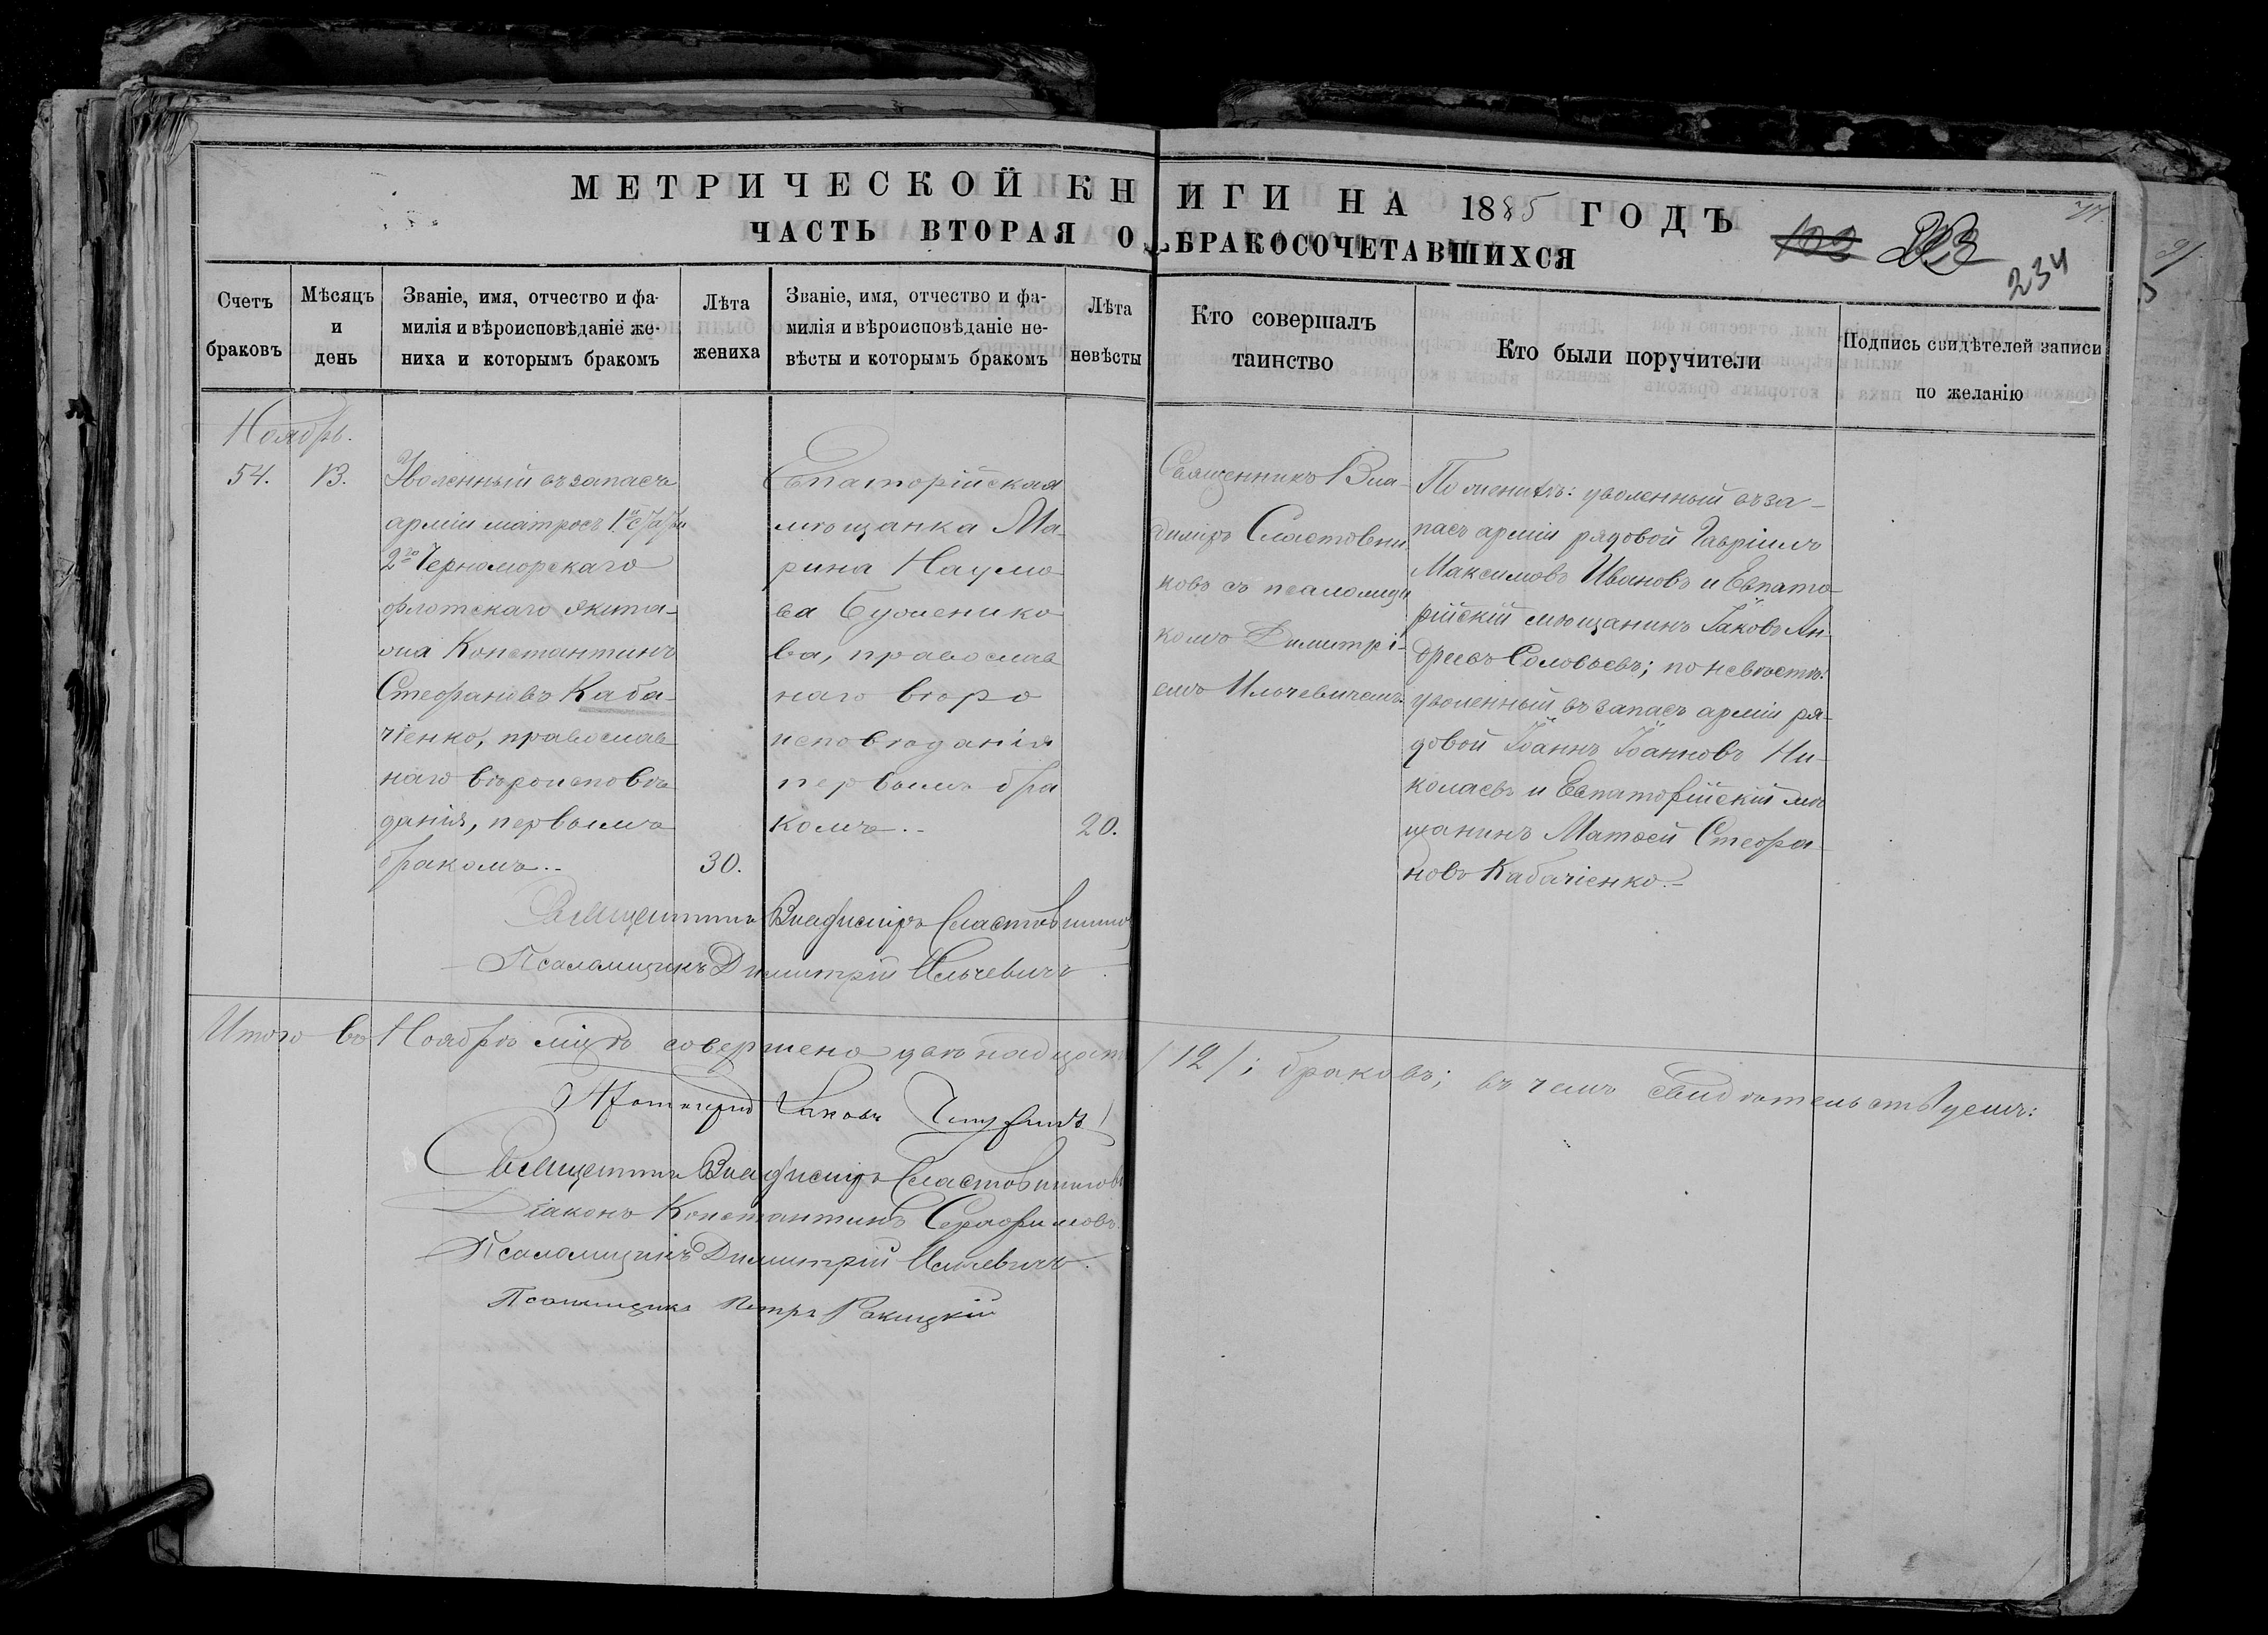 МЕТРИЧЕСКОЙ КНИГИ НА 1885 ГОДЪ
ЧАСТЬ ВТОРАЯ О БРАКОСОЧЕТАВШИХСЯ
234
Счетъ браковъ
Мѣсяцъ и день
Званіе, имя, отчество и фа-
милія и вѣроисповѣданіе же-
ниха и которымъ бракомъ
Лѣта жениха
Званіе, имя, отчество и фа-
милія и вѣроисповѣданіе не-
вѣсты и которымъ бракомъ
Лѣта невѣсты
Кто совершалъ
таинство
Кто были поручители
Подпись свидѣтелей записи
по желанію
Ноябрь.
54.
13.
Уволенный въ запасъ
арміи матросъ 1й
2го Черноморскаго
флотскаго экипа-
жа Константинъ
Стефановъ Каба-
чіенко, православ
наго вѣроисповѣ
данія, первымъ
бракомъ..
30.
Евпаторійская
мѣщанка Ма-
рина Наумо-
ва
ва, православ
наго вѣро
исповѣданія
первымъ бра
комъ..
20.
Священникъ Вла-
диміръ Сластовни
ковъ съ псаломщи
комъ Димитрі-
емъ Ильчевичемъ.
По женихѣ: уволенный въ за-
пасъ арміи рядовой Гавріилъ
Максимовъ Ивановъ и Евпато-
рійскій мѣщанинъ Іаковъ Ан-
дреевъ Соловьевъ; по невѣстѣ:
уволенный въ запасъ арміи ря-
довой Іоаннъ Іоанновъ Ни-
колаевъ и Евпаторійскій мѣ
щанинъ Матѳей Стефа-
новъ Кабачіенко.-
Священникъ Владиміръ Сластовниковъ
Псаломщикъ Димитрій Ильчевичъ.
Итого въ Ноябрѣ мцѣ совершено двѣнадцать /12/; браковъ; въ чемъ свидѣтельствуемъ:
Протоіерей Іаковъ
Священникъ Владиміръ Сластовниковъ
Діаконъ Константинъ Серафимовъ.
Псаломщикъ Димитрій Ильчевичъ.
Псаломщикъ Петръ Ракицкій